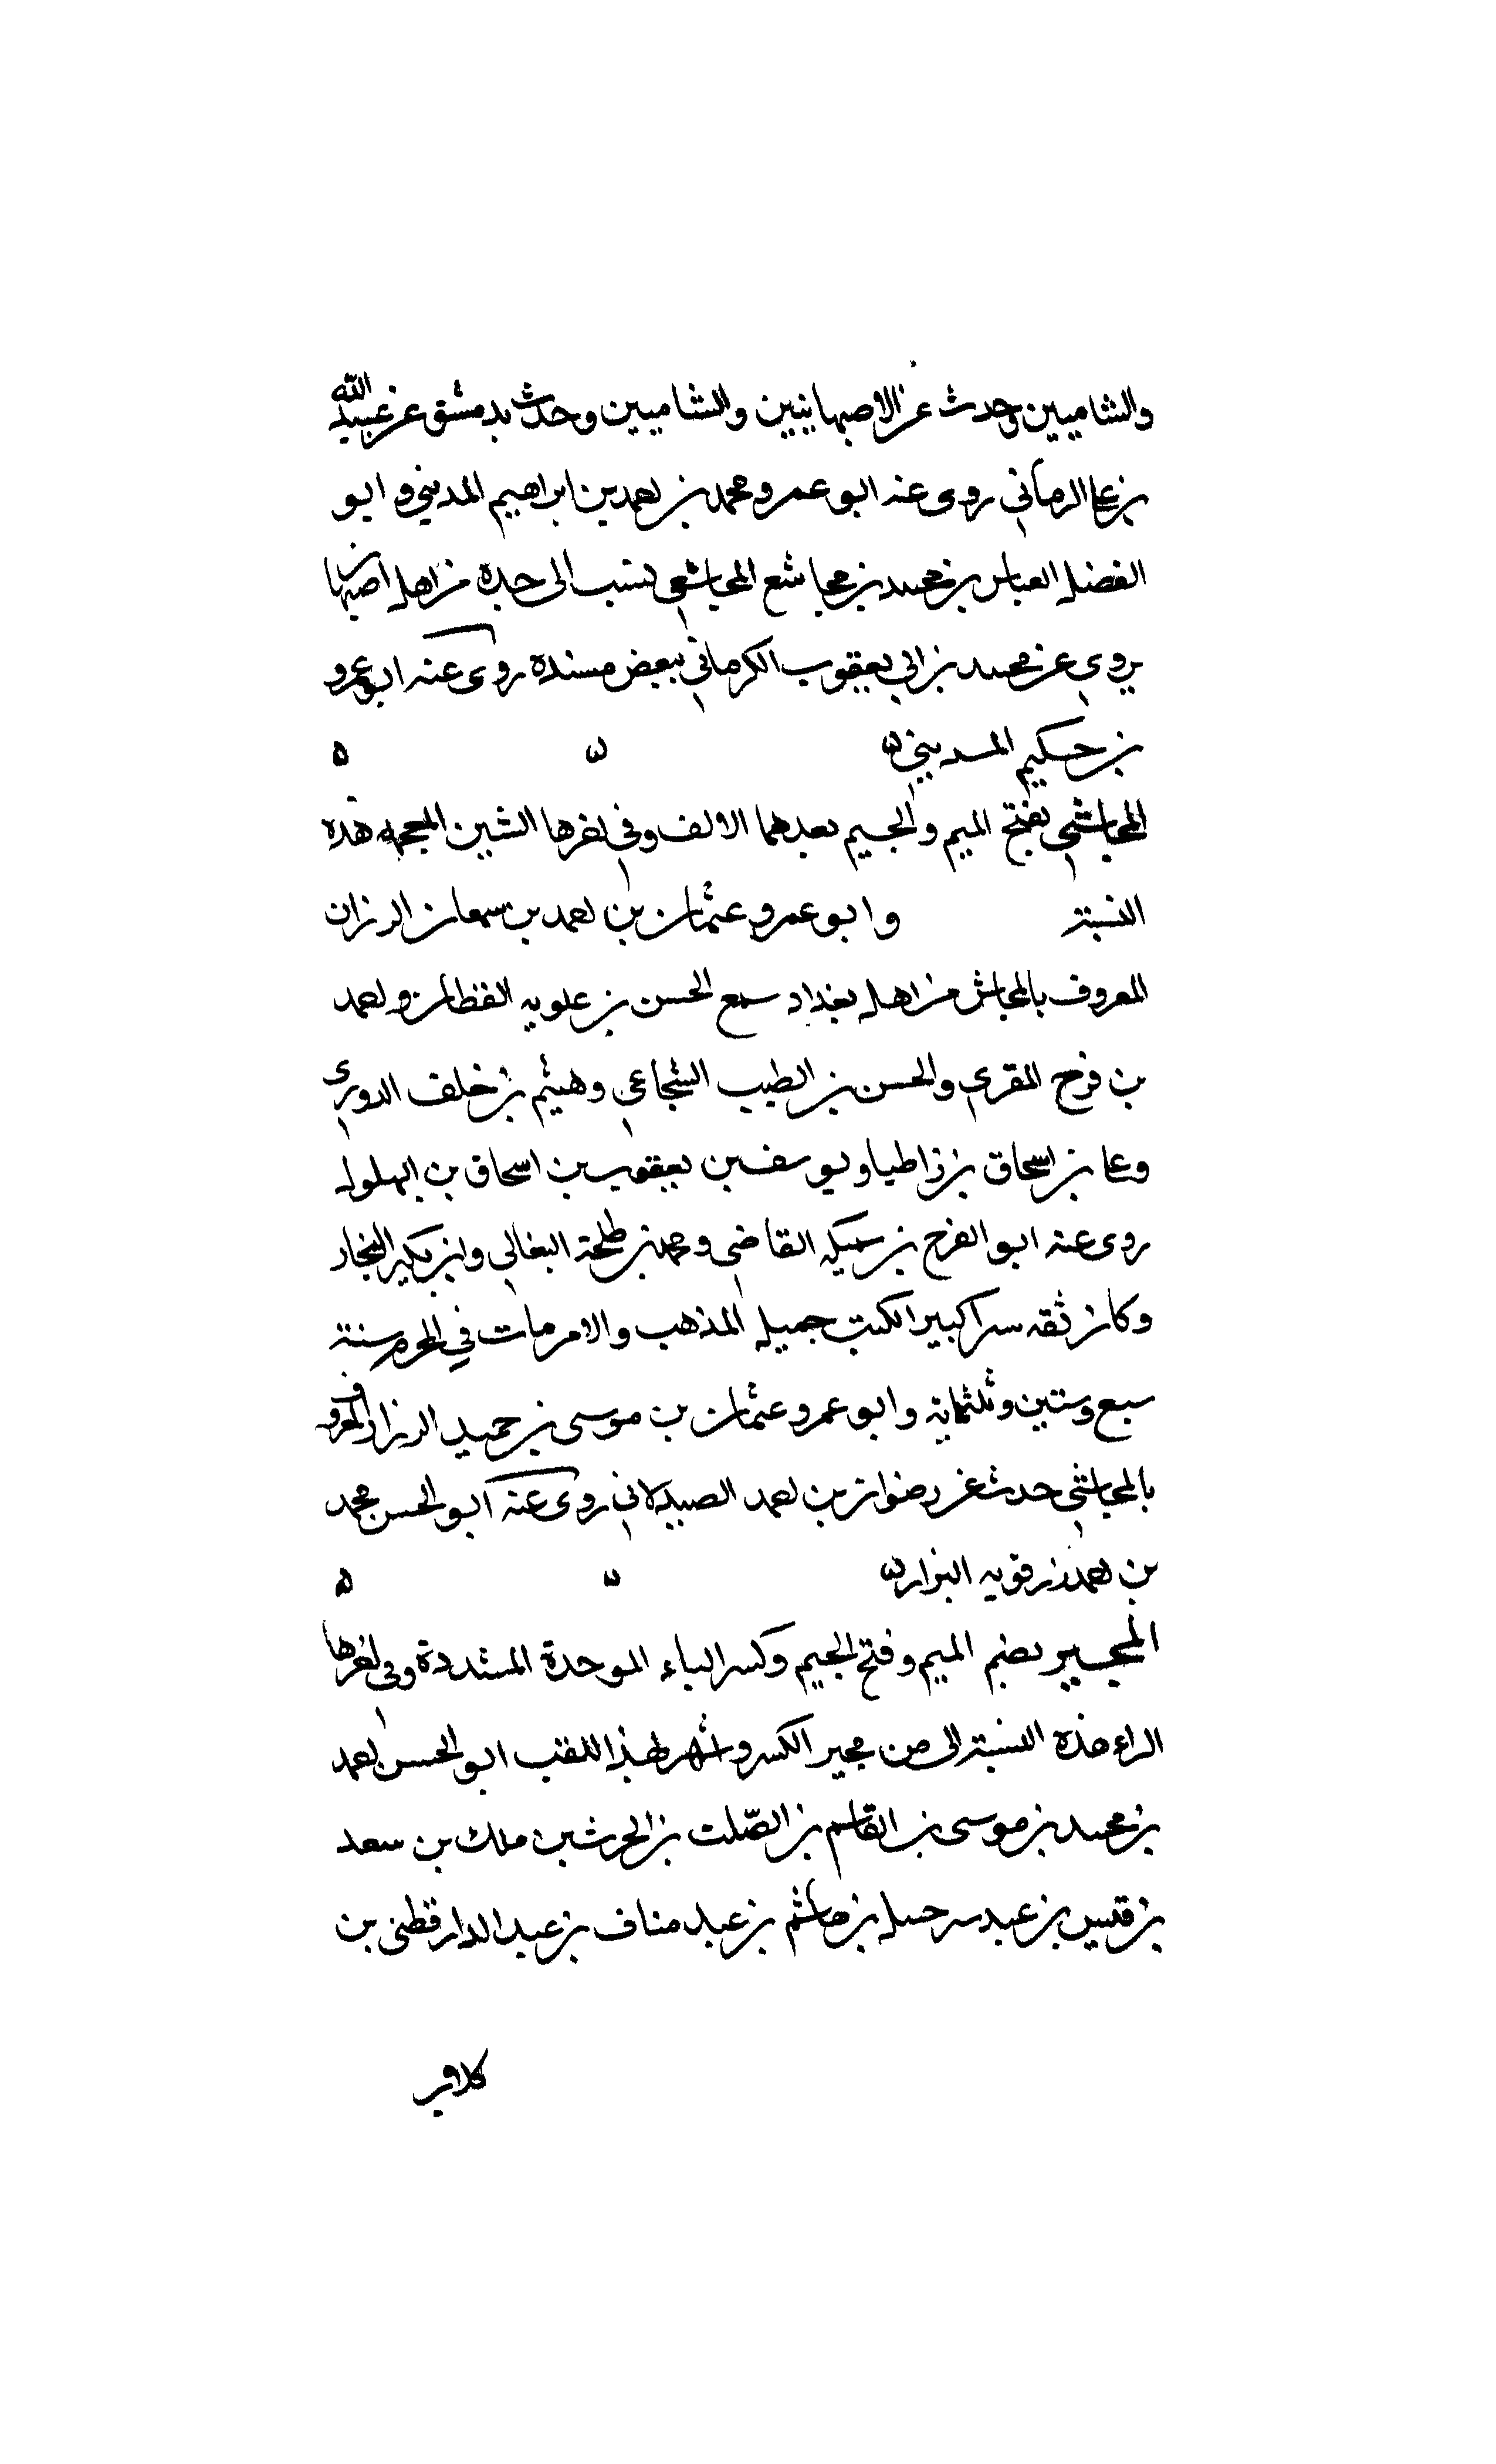 والشاميين وحدث عن الاصبهانيين والشاميين وحدث بدمشق عن عبيد الله
بن علي الرماني روى عنه ابو عمرو محمد بن احمد بن ابراهيم المديني و ابو
الفضل العباس بن محمد بن مجاشع المجاشعي نسب الى جده من اهل اصبهان
يروي عن محمد بن ابي يعقوب الكرماني ببعض مسنده روى عنه ابو عمرو
بن حكيم المديني ه ه ه
المجاشي بفتح الميم والجيم بعدهما الالف وفي اخرها الشين المعجمة هذه
النسبة وابو عمرو عثمان بن احمد بن سمعان الرزان
المعروف بالمجاشي من اهل بغداد سمع الحسن بن علويه القطان واحمد
بن فرح المقري والحسن بن الطيب الشجاعي وهيثم بن خلف الدوري
وعلي بن اسحاق بن زاطيا ويوسف بن يعقوب بن اسحاق بن البهلول
روى عنه ابو الفرج بن سميكه القاضي ومحمد بن طلحة النعالي وابن بكير النجار
وكان ثقه سرا كبير الكتب جميل المذهب والامر مات في المحرم سنة
سبع وستين وثلثماية وابو عمرو عثمان بن موسى بن حميد الرزاز المعروف
بالمجاشي حدث عن رضوان بن احمد الصيدلاني روى عنه ابو الحسن محمد
بن احمد بن رزقويه البزار ه ه ه
المجبر بضم الميم وفتح الجيم وكسر الباء الموحدة المشددة وفي اخرها
الراء هذه النسبة الى من يجبر الكسر واشهر بهذا اللقب ابو الحسن احمد
بن محمد بن موسى بن القاسم بن الصّلت بن الحرث بن ملك بن سعد
بن قيس بن عبد سرحبيل بن هاشم بن عبد مناف بن عبد الدار قطني بن
كلاب